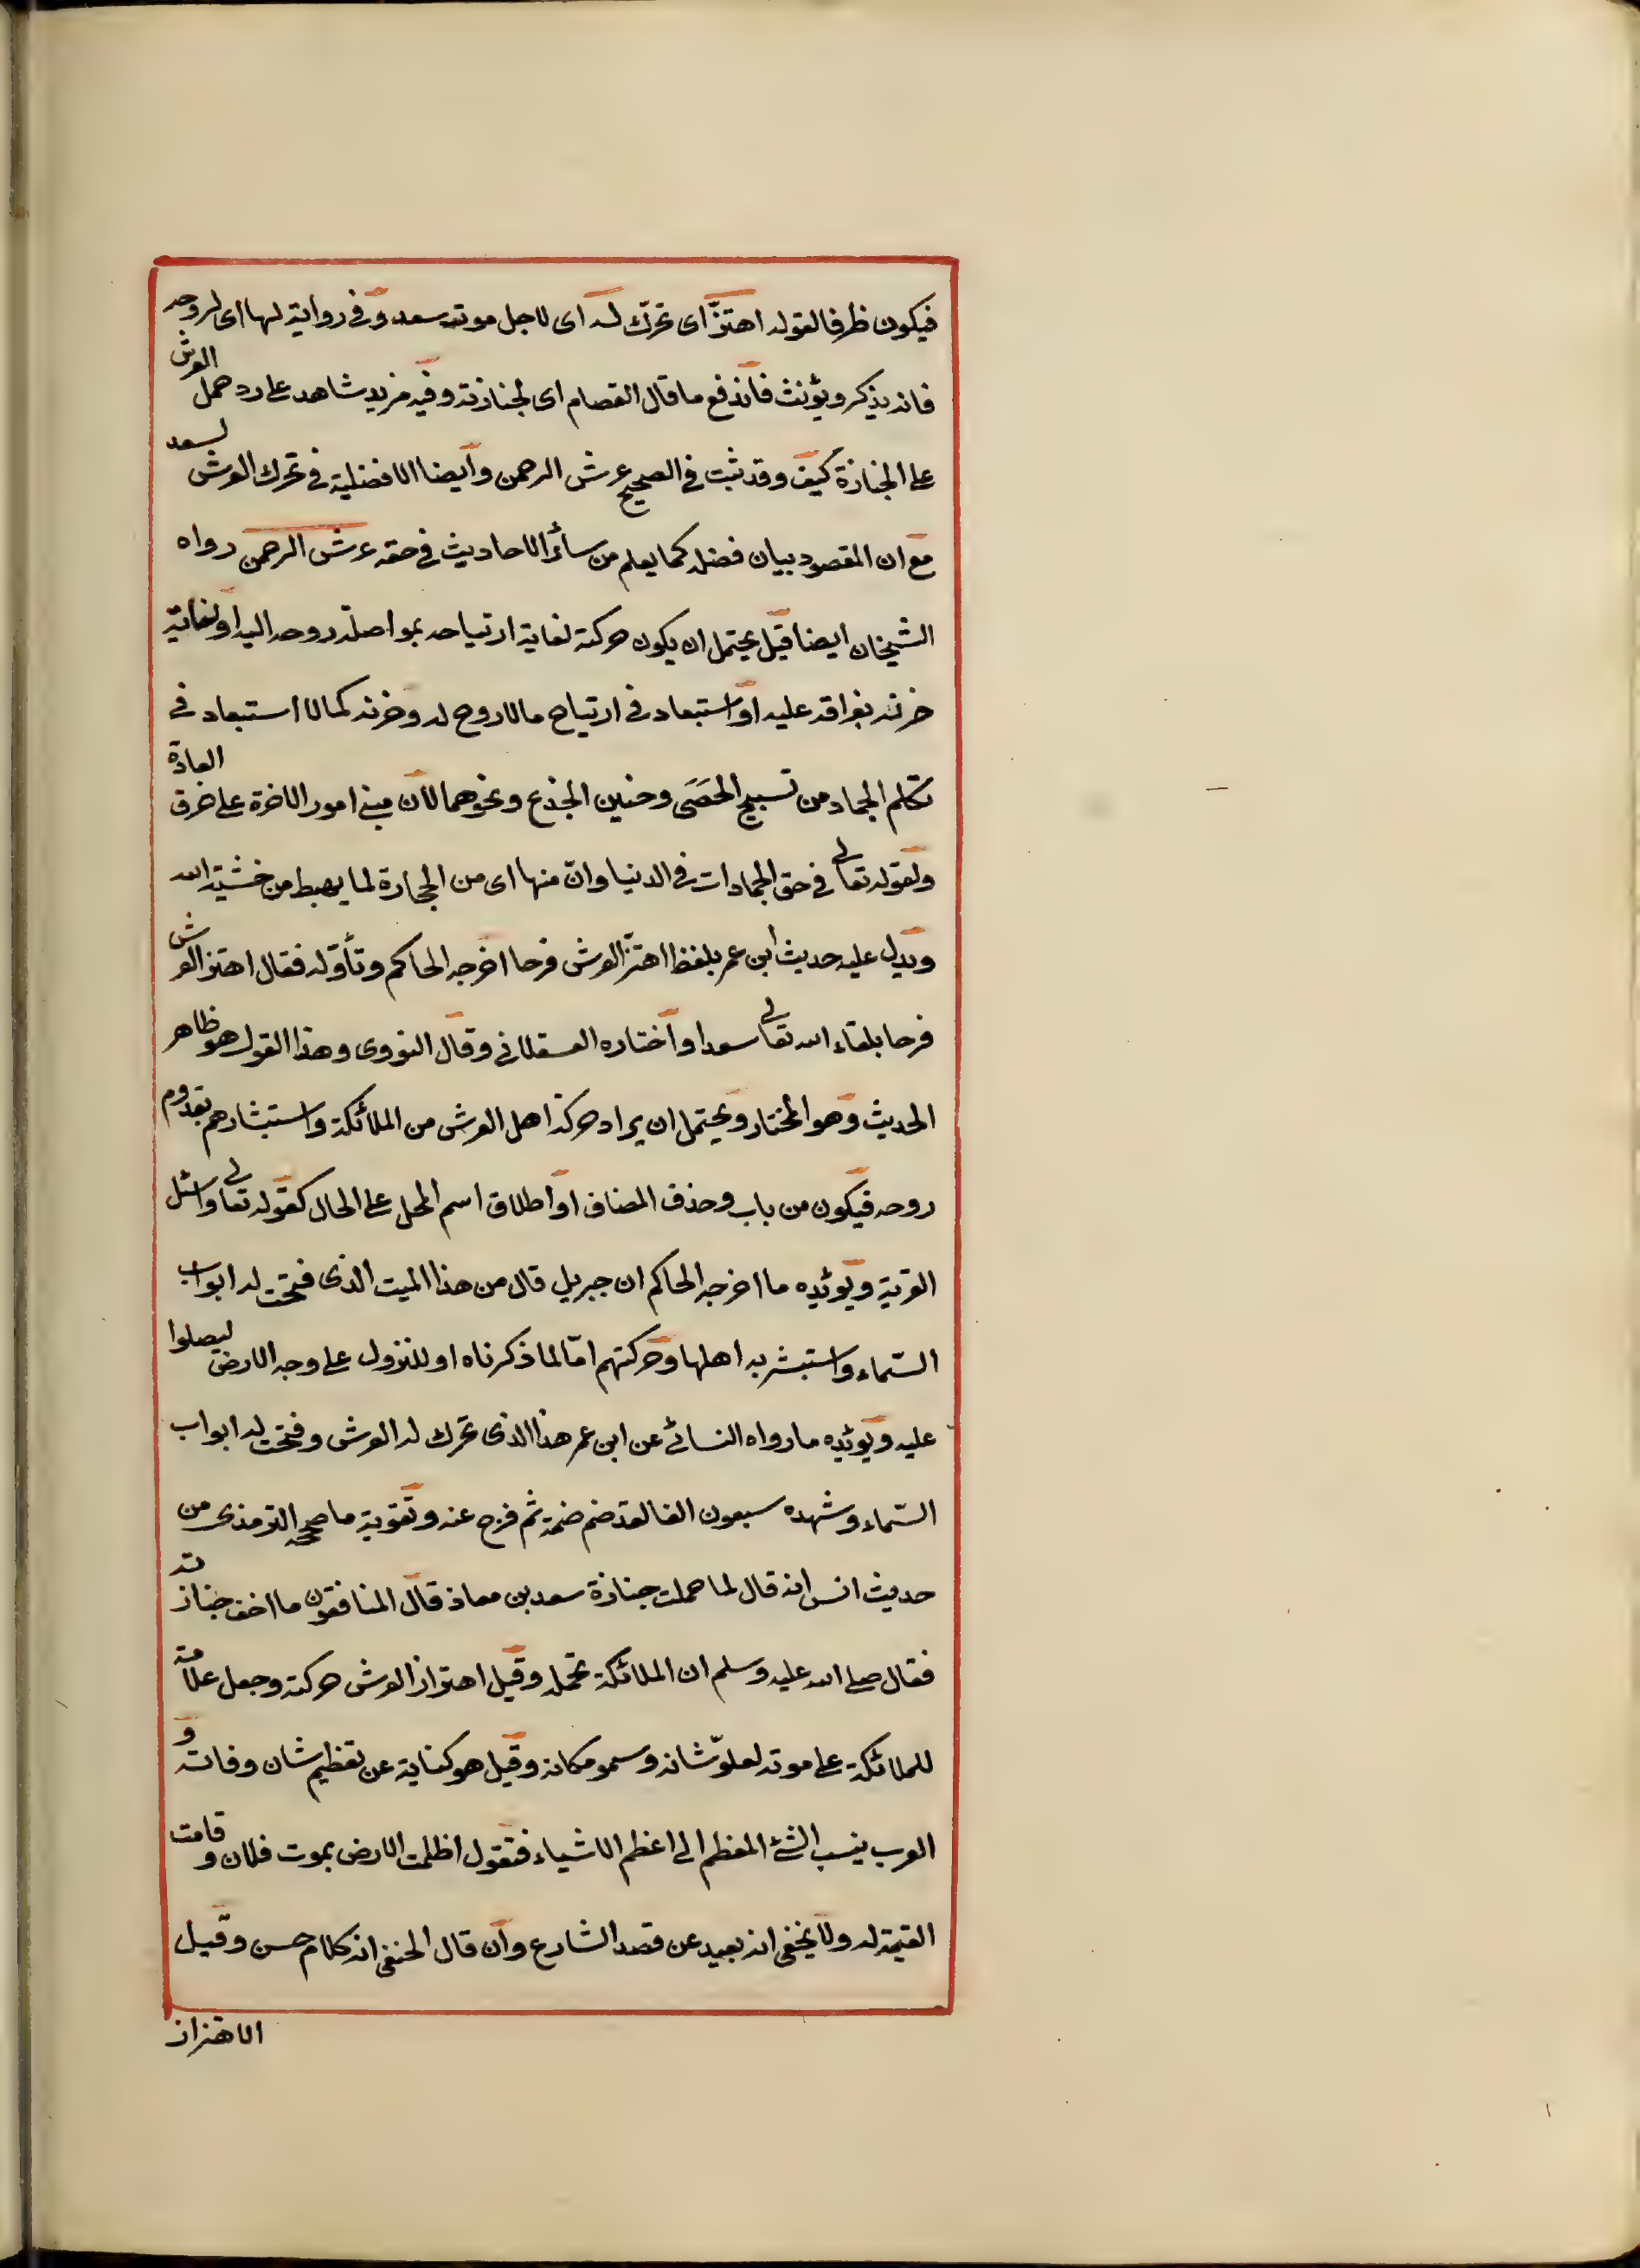 فيكون ظرفا لقوله اهتزّ اى تحرّك له اى لاجل موته سعد وفى رواية لها اى لروحه
فانه يذكر ويؤنث فاندفع ما قال العصام اى لجنازته وفيه مزيد شاهد على رد حمل العرش
على الجنازة كيف وقد ثبت فى الصحيح عرش الرحمن وايضا الافضلية فى تحرك العرش لسعد
مع ان المقصود بيان فضله كما يعلم من سائر الاحاديث فى حقه عرش الرحمن رواه
الشيخان ايضا قيل يحتمل ان يكون حركته لغاية ارتياحه بمواصلة روحه اليه او لغاية
حزنه بفراقه عليه او استبعاد فى ارتياح مالا روح له وحزنه كما لا استبعاد فى
تكلم الجماد من تسبيح الحصَى وحنين الجذع ونحوهما لان مبنى امور الاخرة على خرق العادة
ولقوله تعالى فى حق الجمادات فى الدنيا وانّ منها اى من الحجارة لما يهبط من خشية الله
ويدل عليه حديث ابن عمر بلفظ اهتزّ العرش فرحا اخرجه الحاكم وتأوّله فقال اهتز العرش
فرحا بلقاء الله تعالى سعدا واختاره العسقلانى وقال النووى وهذا القول هو ظاهر
الحديث وهو المختار ويحتمل ان يراد حركة اهل العرش من الملائكة واستبشارهم بقدوم
روحه فيكون من باب وحذف المضاف او اطلاق اسم المحل على الحال كقوله تعالى واسئل
القرية ويؤيده ما اخرجه الحاكم ان جبريل قال من هذا الميت الذى فتحت له ابواب
السّماء واستبشر به اهلها وحركتهم امّا لما ذكرناه او للنزول على وجه الارض ليصلوا
عليه ويؤيده ما رواه النسائى عن ابن عمر هذا الذى تحرك له العرش وفتحت له ابواب
السّماء وشهده سبعون الفا لقد ضم ضمة ثم فرج عنه وتقويه ما صححه الترمذى من
حديث انس انه قال لما حملت جنازة سعد بن معاذ قال المنافقون ما اخف جنازته
فقال صلى الله عليه وسلم ان الملائكة تحمله وقيل اهتزاز العرش حركته وجعل علامة
للملائكة على موته لعلوّ شانه وسمو مكانه وقيل هو كناية عن تعظيم شان وفاته و
العرب ينسب الشئ المعظم الى اعظم الاشياء فتقول اظلمت الارض بموت فلان وقامت
القيمة له ولا يخفى انه بعيد عن قصد الشارع وان قال الحنفى انه كلام حسن وقيل
الاهتزاز